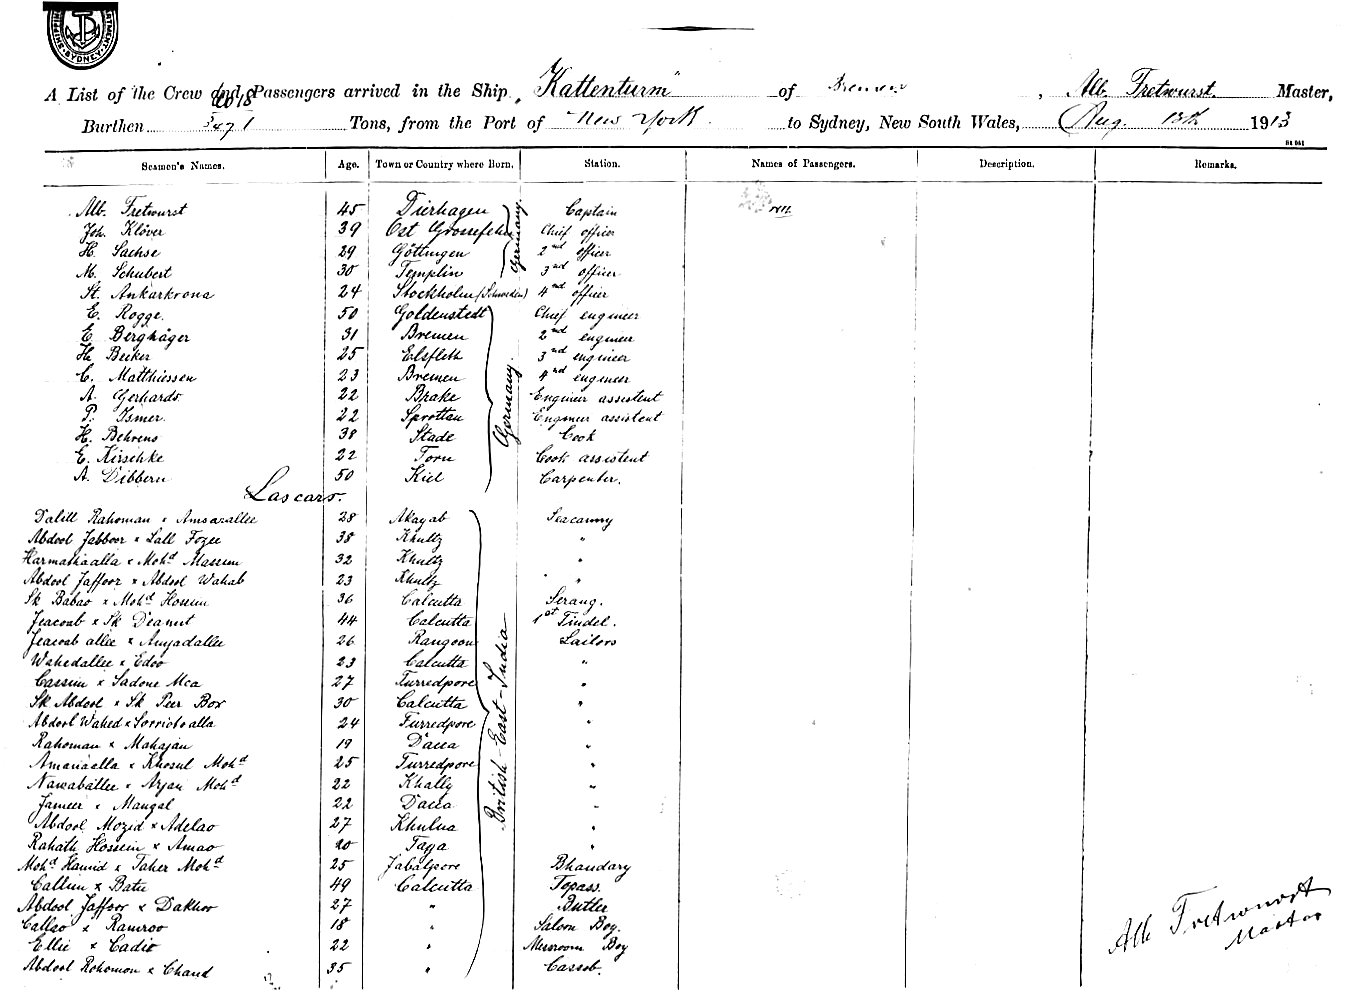 SHIPPING SYDNEY
A List of the Crew and Passengers arrived in the Ship, "Kattenturm" of Bremen, Alb. Tretwurst Master,
Burthen 3471 Tons, from the Port of New York to Sydney, New South Wales, Aug. 13th 1913
Seamen's Names. Age. Town or Country where Born. Station. Names of Passengers. Description. Remarks.
Alb. Tretwurst 45 Dierhagen Captain
Joh. Klöver 39 Ost Grossefehn Chief officer
H. Sachse 29 Göttingen 2nd officer
M. Schubert 30 Templin 3nd officer
Germany.
St. Ankarkrona 24 Stockholm (Schweden) 4nd officer
E. Rogge. 50 Goldenstedt Chief engineer
E. Berghäger 31 Bremen 2nd engineer
H. Becker 25 Elsfleth 3nd engineer
C. Matthiessen 23 Bremen 4nd engineer
A. Gerhards 22 Brake Engineer assistent
P. Ismer. 22 Sprottau Engineer assistent
H. Behrens 38 Stade Cook
E. Kirschke 22 Torn Cook assistent
A. Dibbern 50 Kiel Carpenter.
Germany.
Lascars.
Dalill Rahoman x Amsarallee 28 Akayab Seacunny
Abdool Jabboor x Lall Fozee 38 Khultz "
Harmathaalla x Mohd Massim 32 Khultz "
Abdool Jaffoor x Abdool Wahab 23 Khultz " "
Sk Babao x Mohd Hossein 36 Calcutta Serang.
Jeacoub x Sk Deanut 44 Calcutta 1st Tindel.
Jeacoub allee x Amjadallee 26 Rangoon Sailors
Wahedallee x Edoo 23 Calcutta "
Cassim x Sadone Mea 27 Furredpore "
Sk Abdool x Sk Peer Box 30 Calcutta "
Abdool Wahed x 24 Furredpore "
Rahoman x Mahajan 19 Dacca "
Amanaella x Khosul Mohd 25 Furredpore "
Nawaballee x Arjan Mohd 22 Khally "
Jameer x Mangal 22 Dacca "
Abdool Mozid x Adelao 27 Khulna "
Rahath Hossein x Amao 20 "
Mohd Hamid x Taher Mohd 25 Jabalpore Bhandary
Callim x Batu 49 Calcutta Topass.
Abdool Jaffoor x Dakhoo 27 " Butler
Callao x Ramroo 18 " Saloon Boy.
Ellie x Cadir 22 " Messroom Boy
Abdool Rohomon x Chand 35 " Cassab.
British-East-India
Alb Tretwurst
Master